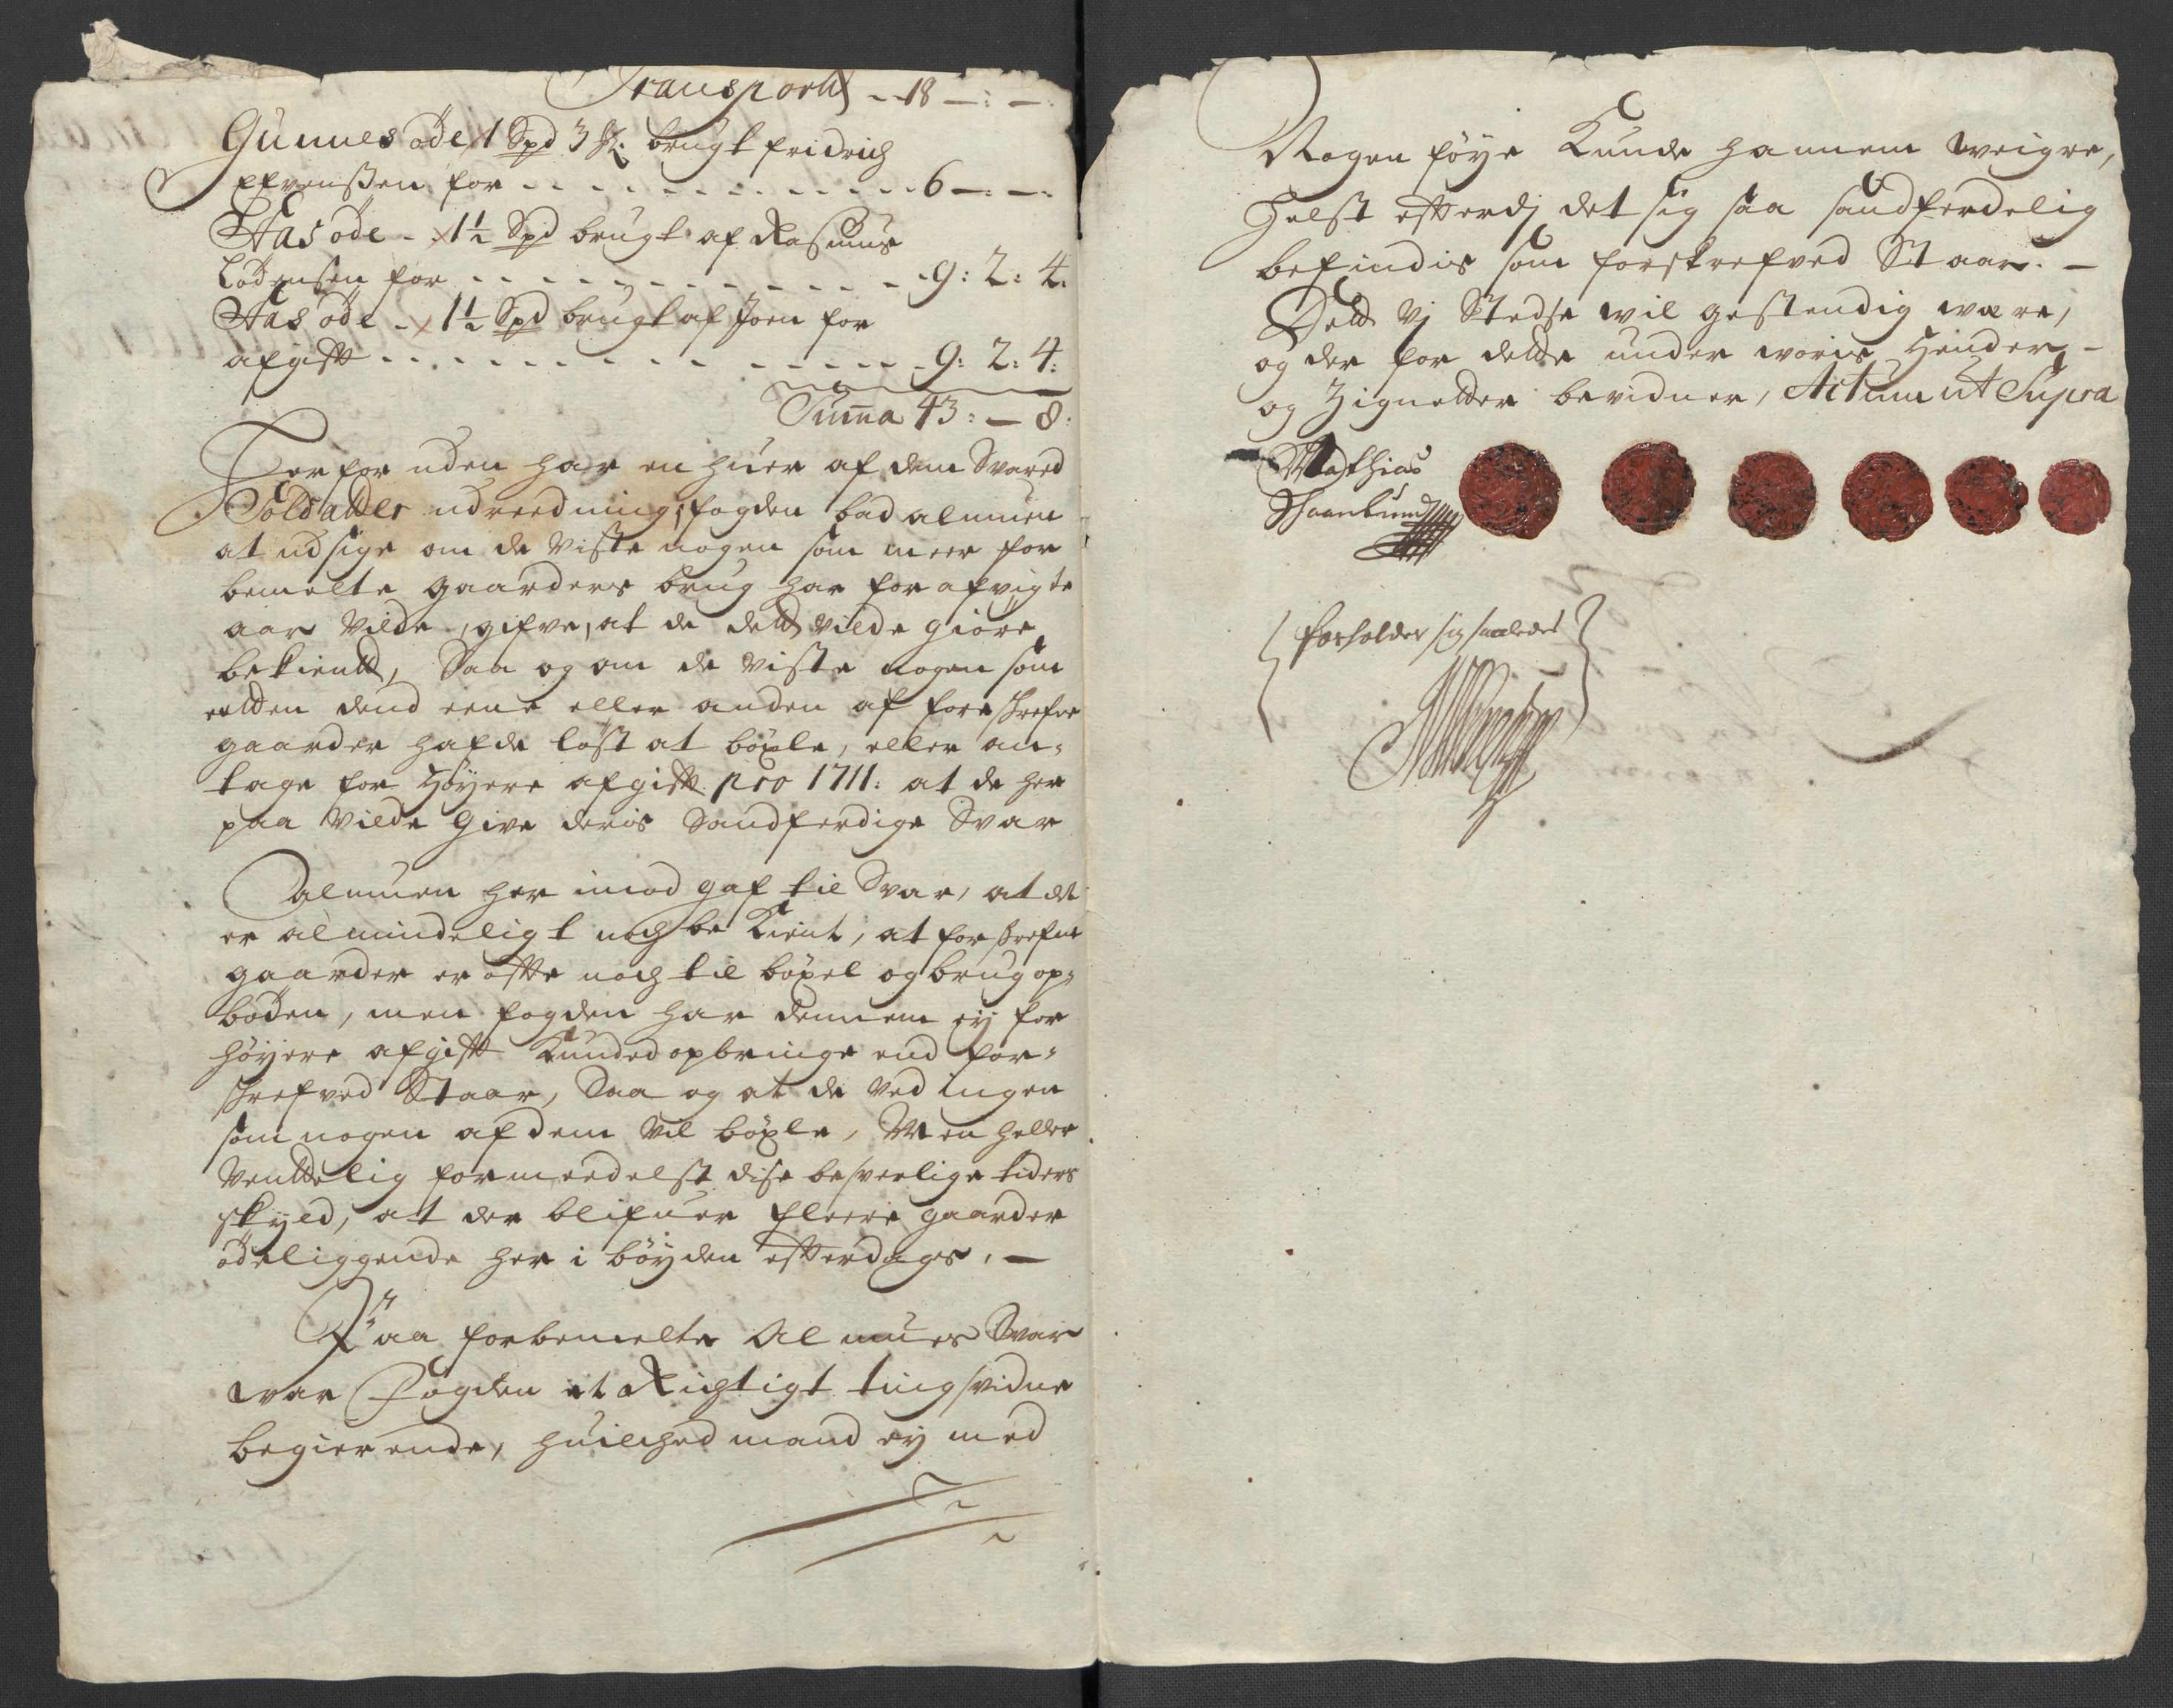 Transportt - 18 - : - :
Gunnes øde 1 Spd 3 : brugt fridrich
Efvenßen for - - - 6 - : - :
Aas øde - 1½ Spd brugt af Rasmus
Lodensen for - - - 9 : 2 : 4 :
Aas øde - 1½ Spd brugt af Joen for
afgifft - - - 9 : 2 : 4 :
Summa 43 : - 8 :
For for uden har en huer af dem Svared
Soldatter udreedning; fogden bad almuen
at udsige om de viste nogen som meer for
bemelte gaarders brug har for afvigte
aar vilde gifve, at de dett vilde giøre
bekientt, Saa og om de viste nogen som
entten dend eene eller anden af foreskrefne
gaarder hafde løst at bøxle, eller an-
tage for høyere afgifft pro 1711: at de her
paa vilde Give deris Sandferdige Svar
Almuen her imod gaf til Svar, at det
er almindeligt noch be Kient, at forskrefne
gaarder er offte noch til bøxel og brug op-
boden, men fogden har dennem ey for
høyere afgifft Kunded opbringe end for-
skrefved Staar, Saa og at de ved ingen
som nogen af dem vil bøxle, Men heller
venttelig formeedelst dise besverlige tiders
skyld, at der blifuer fleere gaarder
ødeliggende her i bøyden effterdags. -
Paa forbemelte Almues Svar
war Fogden et Richtigt tingsvidne
begierende, huilched mand ey med
Nogen føye Kunde hannem weigre,
Helst efterdj det sig saa sandferdelig
befindis som forskrefved Staar. -
Dett Vj Stedse wil gestendig være,
og der for dette under woris Hender -
og Zignetter bevidner, Actum ut Supra
Mathias
forholder sig saaledes